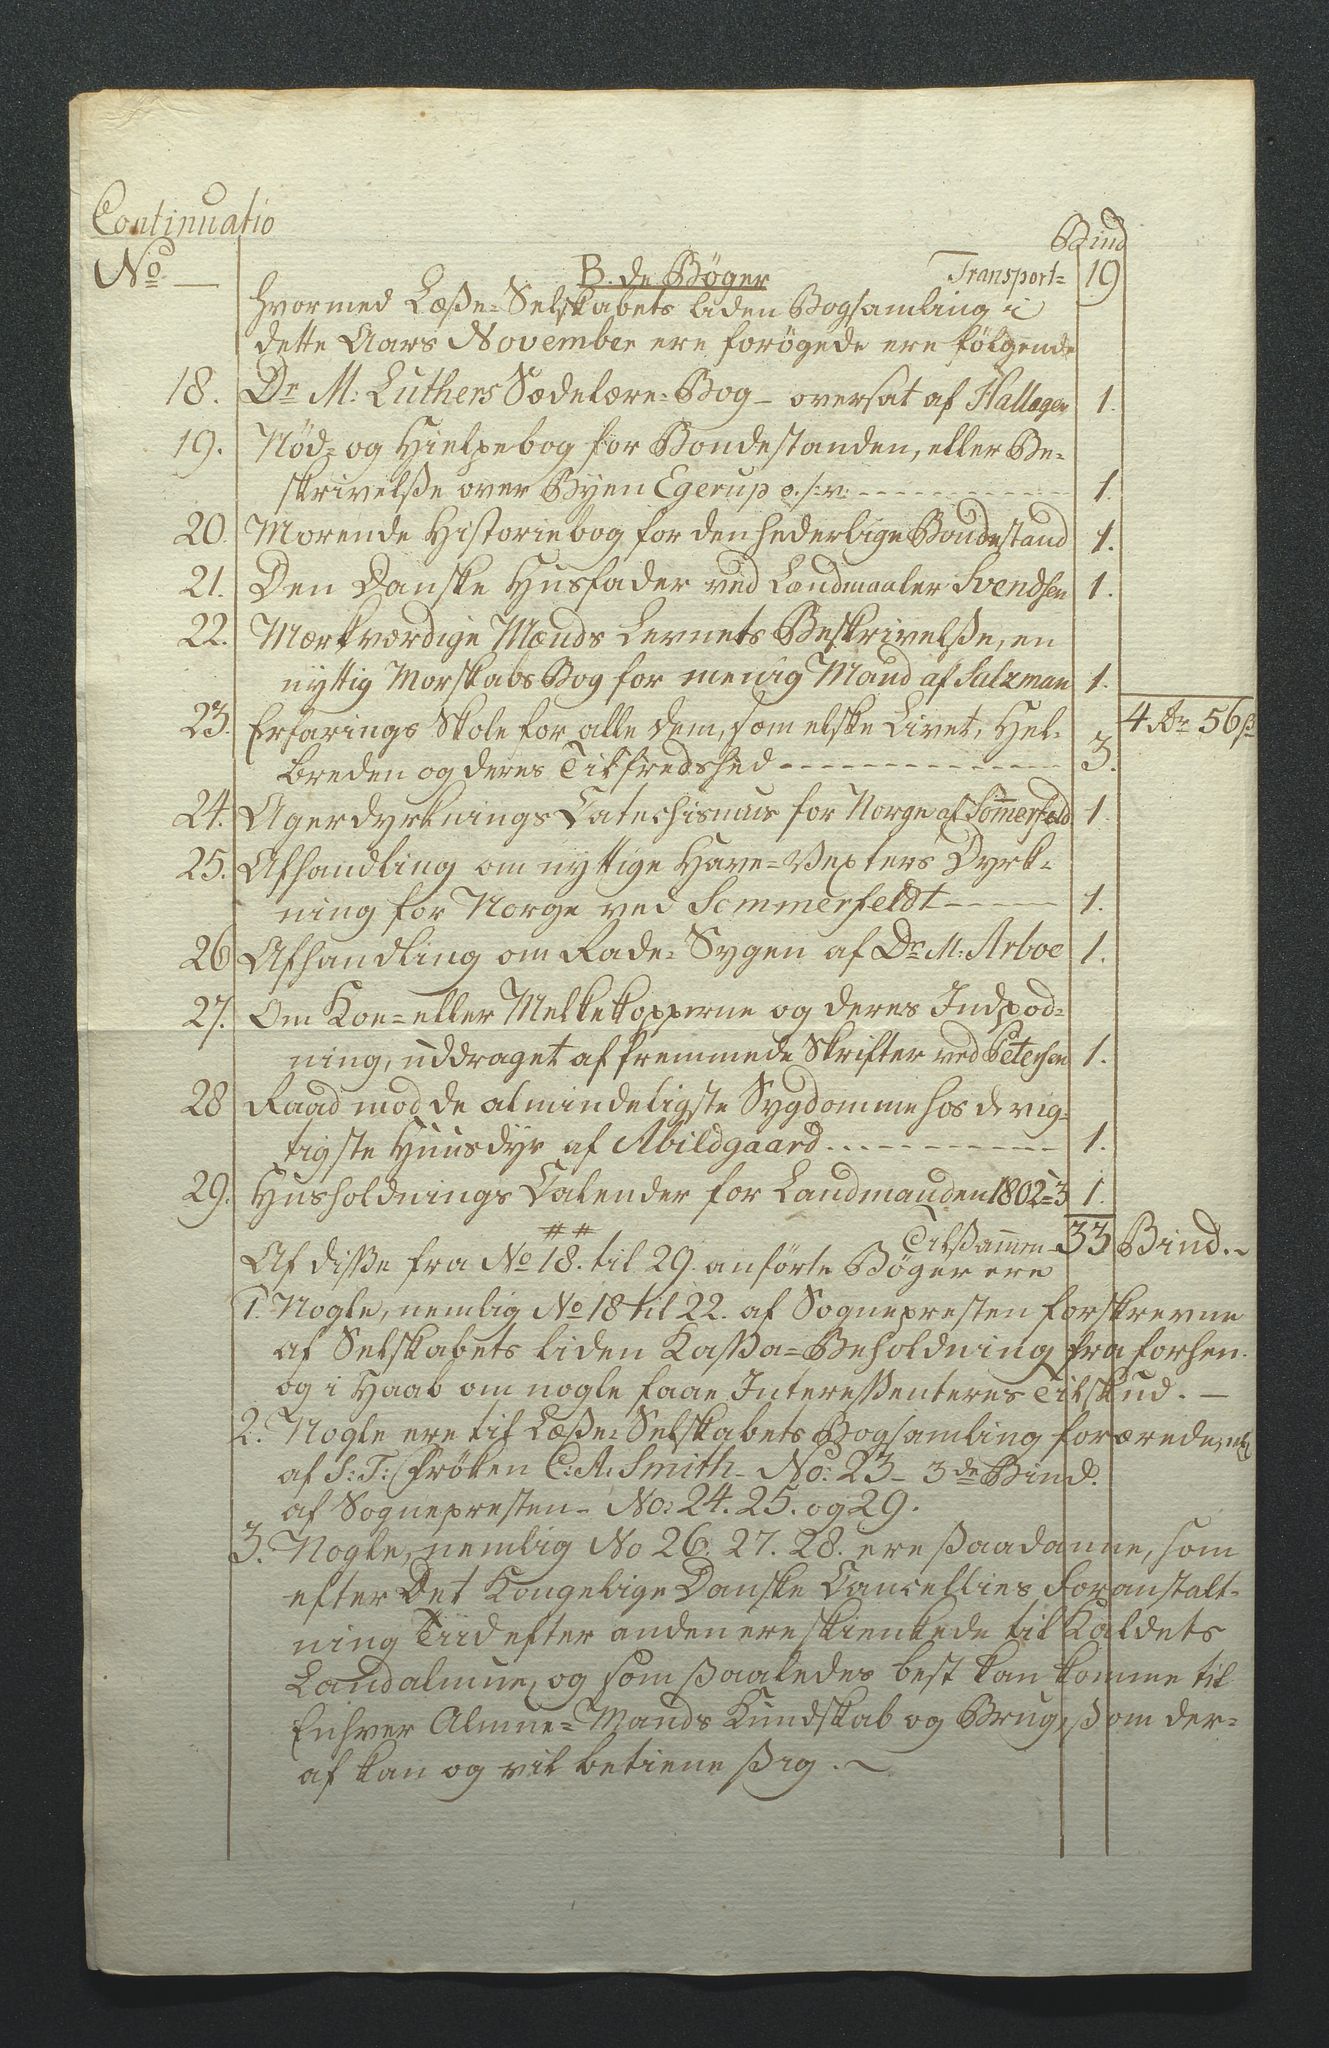 Continuatio
Bind
No —
B. de Bøger Transport= 19
hvormed Læße=Selskabets liden Bogsamling i
dette Aars November ere forøgede ere følgende
18. Dr M: Luthers Sædelære=Bog – oversat af Hallager 1.
19. Nød= og Hielpebog for Bondestanden, eller Be=
skrivelße over Byen Egerup o. s: v: 1.
20. Morende Historiebog for den hederlige Bondestand 1.
21. Den Danske Husfader ved Landmaaler Svendsen 1.
22. Mærkværdige Mænds Levnets Beskrivelße, en
nyttig Morskabs Bog for menig Mand af Salzman 1.
23. Erfarings Skole for alle dem, som elske Livet, Hel=
breden og deres Tilfredshed 3.
4 Dr 56 ß
24. Agerdyrknings Catechismus for Norge af Som̄erfeld 1.
25. Afhandling om nyttige Have=Vexters Dyrk=
ning for Norge ved Sommerfeldt 1.
26 Afhandling om Rade=Sygen af Dr M: Arboe 1.
27. Om Koe= eller Melkekopperne og deres Indpod=
ning, uddraget af fremmede Skrifter ved Petersen 1.
28 Raad mod de almindeligste Sygdomme hos de vig=
tigste Huusdyr af Abildgaard 1.
29. Husholdnings Calender for Landmanden 1802=3 1.
Tilßam̄en 33 Bind.
Af disse fra No 18. til 29. anførte Bøger ere
1. Nogle, nemlig No 18 til 22. af Sognepresten forskrevne
af Selskabets liden Kaßa=Beholdning fra forhen.
og i Haab om nogle faae Interessenteres Tilskud. —
2. Nogle ere til Læße=Selskabets Bogsamling forærede,
af S: T: Frøken C: A: Smith – No: 23 – 3de Bind.
af Sognepresten – No: 24. 25. og 29.
3. Nogle, nemlig No 26. 27. 28. ere ßaadanne, som
efter Det Kongelige Danske Cancellies Foranstalt=
ning Tiid efter anden ere skienkede til Kaldets
Landalmue, og som ßaaledes best kan komme til
Enhver Almue=Mands Kundskab og Brug, ßom der=
af kan og vil betiene ßig.